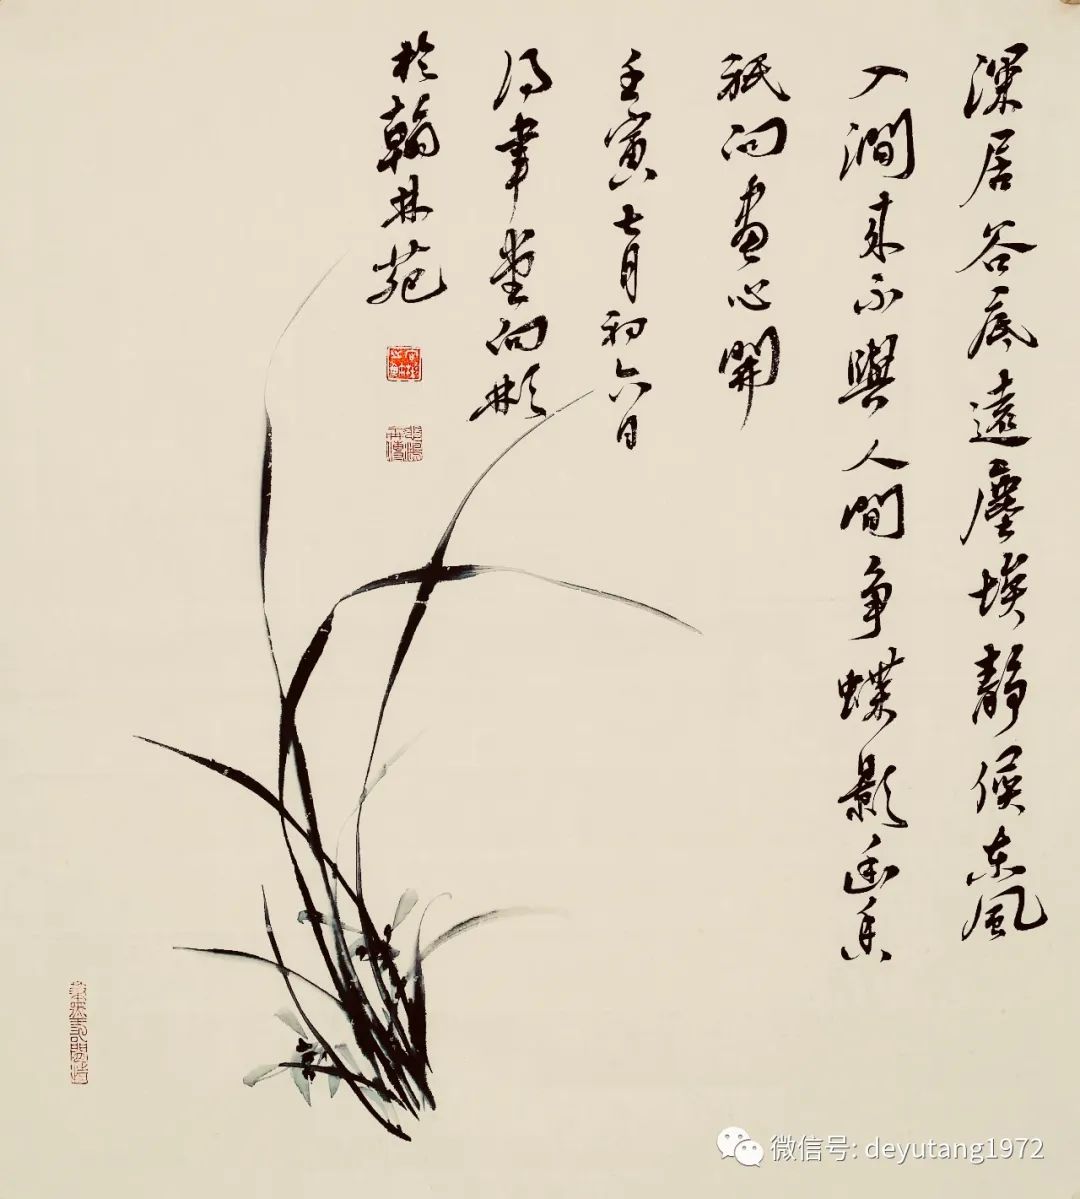 深居谷底遠塵埃靜候东風
入澗来不與人間争蝶影幽香
祇向畫心開
壬寅七月初六日
得聿堂向彬
於翰林苑
微信号: deyutang1972